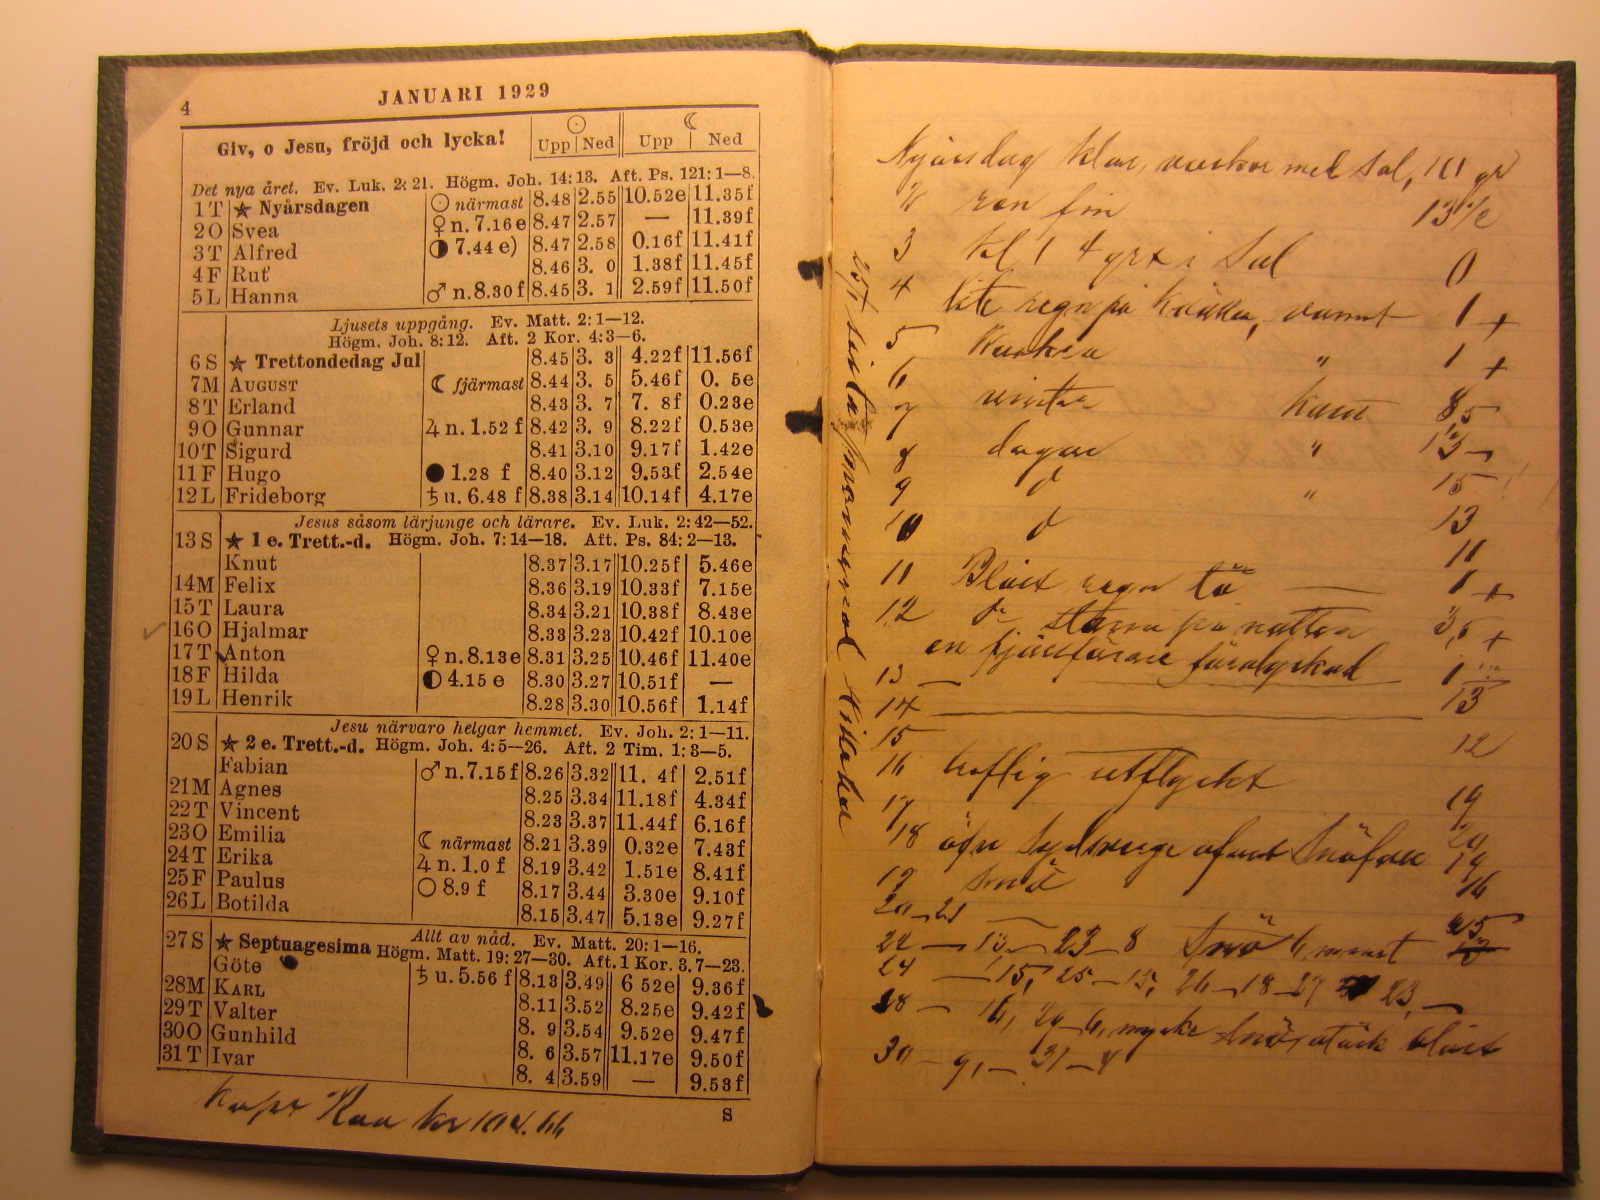 4
JANUARI 1929
Giv, o Jesu, fröjd och lycka! Upp Ned Upp Ned
Det nya året. Ev. Luk. 2: 21. Högm. Joh. 14: 13. Aft. Ps. 121: 1—8.
1 T ★ Nyårsdagen ☉ närmast 8.48 2.55 10.52e 11.35f
2 O Svea ♀ n. 7.16 e 8.47 2.57 — 11.39f
3 T Alfred ◑ 7.44 e) 8.47 2.58 0.16f 11.41f
4 F Rut 8.46 3. 0 1.38f 11.45f
5 L Hanna ♂ n. 8.30 f 8.45 3. 1 2.59f 11.50f
Ljusets uppgång. Ev. Matt. 2: 1—12.
Högm. Joh. 8: 12. Aft. 2 Kor. 4: 3—6.
6 S ★ Trettondedag Jul 8.45 3. 3 4.22f 11.56f
7 M AUGUST ☾ fjärmast 8.44 3. 5 5.46f 0. 5e
8 T Erland 8.43 3. 7 7. 8f 0.23e
9 O Gunnar ♃ n. 1.52 f 8.42 3. 9 8.22f 0.53e
10 T Sigurd 8.41 3.10 9.17f 1.42e
11 F Hugo ● 1.28 f 8.40 3.12 9.53f 2.54e
12 L Frideborg ♄ u. 6.48 f 8.38 3.14 10.14f 4.17e
Jesus såsom lärjunge och lärare. Ev. Luk. 2: 42—52.
13 S ★ 1 e. Trett.-d. Högm. Joh. 7: 14—18. Aft. Ps. 84: 2—13.
Knut 8.37 3.17 10.25f 5.46e
14 M Felix 8.36 3.19 10.33f 7.15e
15 T Laura 8.34 3.21 10.38f 8.43e
16 O Hjalmar 8.33 3.23 10.42f 10.10e
17 T Anton ♀ n. 8.13 e 8.31 3.25 10.46f 11.40e
18 F Hilda ◐ 4.15 e 8.30 3.27 10.51f —
19 L Henrik 8.28 3.30 10.56f 1.14f
Jesu närvaro helgar hemmet. Ev. Joh. 2: 1—11.
20 S ★ 2 e. Trett.-d. Högm. Joh. 4: 5—26. Aft. 2 Tim. 1: 3—5.
Fabian ♂ n. 7.15 f 8.26 3.32 11. 4f 2.51f
21 M Agnes 8.25 3.34 11.18f 4.34f
22 T Vincent 8.23 3.37 11.44f 6.16f
23 O Emilia ☾ närmast 8.21 3.39 0.32e 7.43f
24 T Erika ♃ n. 1.0 f 8.19 3.42 1.51e 8.41f
25 F Paulus ○ 8.9 f 8.17 3.44 3.30e 9.10f
26 L Botilda 8.15 3.47 5.13e 9.27f
Allt av nåd. Ev. Matt. 20: 1—16.
27 S ★ Septuagesima Högm. Matt. 19: 27—30. Aft. 1 Kor. 3. 7—23.
Göte ♄ u. 5.56 f 8.13 3.49 6 52e 9.36f
28 M KARL 8.11 3.52 8.25e 9.42f
29 T Valter 8. 9 3.54 9.52e 9.47f
30 O Gunhild 8. 6 3.57 11.17e 9.50f
31 T Ivar 8. 4 3.59 — 9.53f
S
Nyårsdag klar, vacker med Sol,
2 ren fin 13 1/2
3 kl 1 4 i Sol 0
4 lite regn på varmt 1 +
5 " 1 +
6 vinter 8,5
7 dagar " 13
8 d " 15
9 d 13
10 11
11 Blåst regn tö — 1 +
12 d storm på natten 3,5 +
en förolyckad
13 — 1
14 13
15 12
16 utflyckt
17 19
18 Snöfall 19
19 snö 16
20 21
22 — 13 23 — 8 Snö
24 — 15, 25 — 15, 26 — 18 27 23, —
28 — 16, 29 — 6, mycke Snö, stark blåst
30 — 9, — 31 — 4